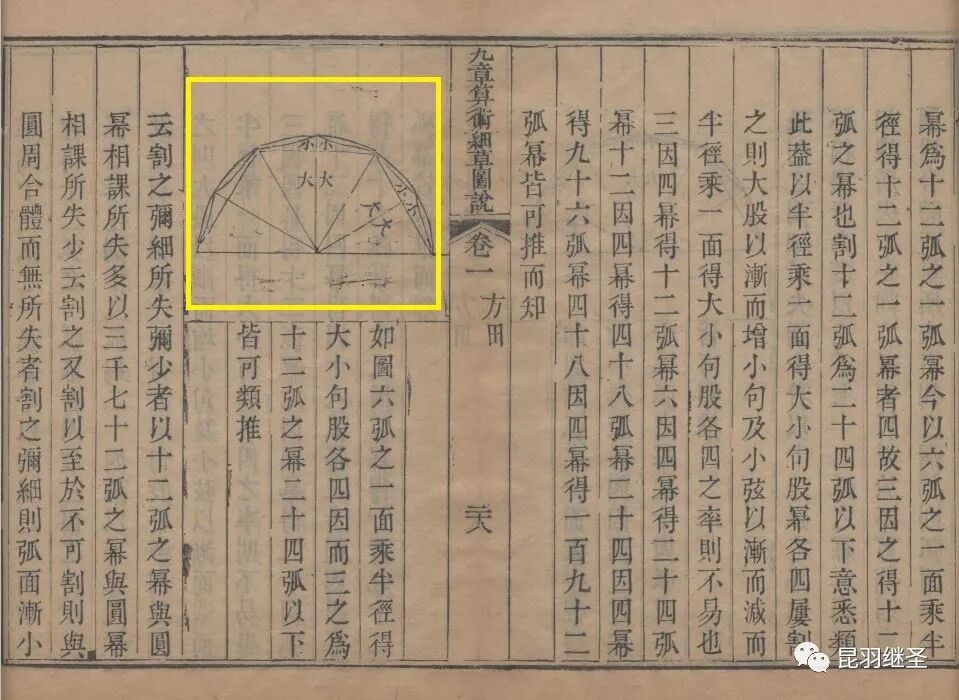 冪爲十二弧之一弧冪今以六弧之一面乘半
徑得十二弧之一弧冪者四故三因之得十二
弧之冪也割十二弧爲二十四弧以下意悉類
此葢以半徑乘一面得大小句股冪各四屢割
之則大股以漸而增小句及小弦以漸而減而
半徑乘一面得大小句股各四之率則不易也
三因四冪得十二弧冪六因四冪得二十四弧
冪十二因四冪得四十八弧冪二十四因四冪
得九十六弧冪四十八因四冪得百九十二
弧冪皆可推而知
九章算術細草圖說 卷一 方田
小小
大大
小小
大大
如圖六弧之一面乘半徑得
大小句股各四因而三之爲
十二弧之冪二十四弧以下
皆可類推
云割之彌細所失彌少者以十二弧之冪與圓
冪相課所失多以三千七十二弧之冪與圓冪
相課所失少云割之又割以至於不可割則與
圓周合體而無所失者割之彌細則弧面漸小
昆羽继圣